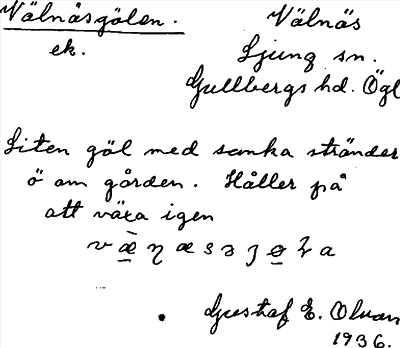 Välnäsgölen. Välnäs
ek. Ljung sn.
Gullbergs hd. Ögl
Liten göl med sanka stränder
ö om gården. Håller på
att växa igen
Gustaf E. Olvan
1936.